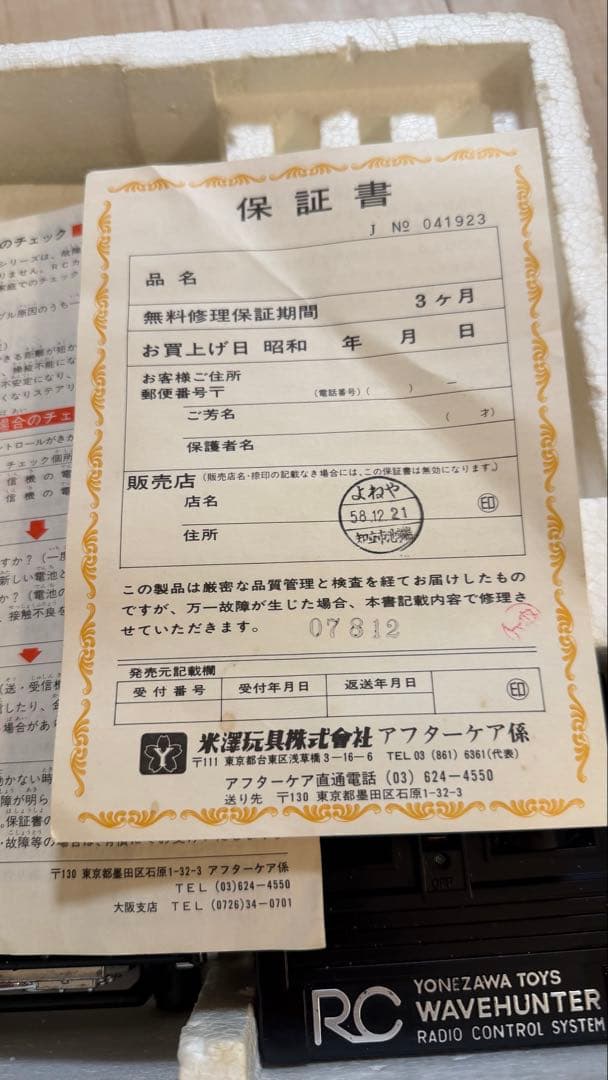 保証書
J № 041923
品名
無料修理保証期間 3ヶ月
お買上げ日 昭和 年 月 日
お客様ご住所
郵便番号〒 (電話番号)( ) ―
ご芳名 ( 才)
保護者名
販売店 (販売店名・捺印の記載なき場合には、この保証書は無効になります。)
店名
印
住所
よねや
58.12.21
この製品は厳密な品質管理と検査を経てお届けしたもの
ですが、万一故障が生じた場合、本書記載内容で修理さ
せていただきます。
07812
発売元記載欄
受付番号 受付年月日 返送年月日
印
米澤玩具株式會社 アフターケア係
〒111 東京都台東区浅草橋3-16-6 TEL 03 (861) 6361(代表)
アフターケア直通電話 (03) 624-4550
送り先 〒130 東京都墨田区石原1-32-3
のチェック
シリーズは、故障
りません。RCカ
家庭でのチェック
ブル原因のうち一
きる距離が短か
、操縦不能にな
不安定になり、
くなりステアリ
場合のチェ
トロールがきか
チェック個所
信機の電
信機の電
すか?(一度
新しい電池と
か?(電池の
、接触不良を
(送・受信機
場合があり
動かない時
障が明ら
。保証書の
〒130 東京都墨田区石原1-32-3 アフターケア係
TEL (03)624-4550
大阪支店 TEL (0726)34-0701
OFF
RC
YONEZAWA TOYS
WAVEHUNTER
RADIO CONTROL SYSTEM